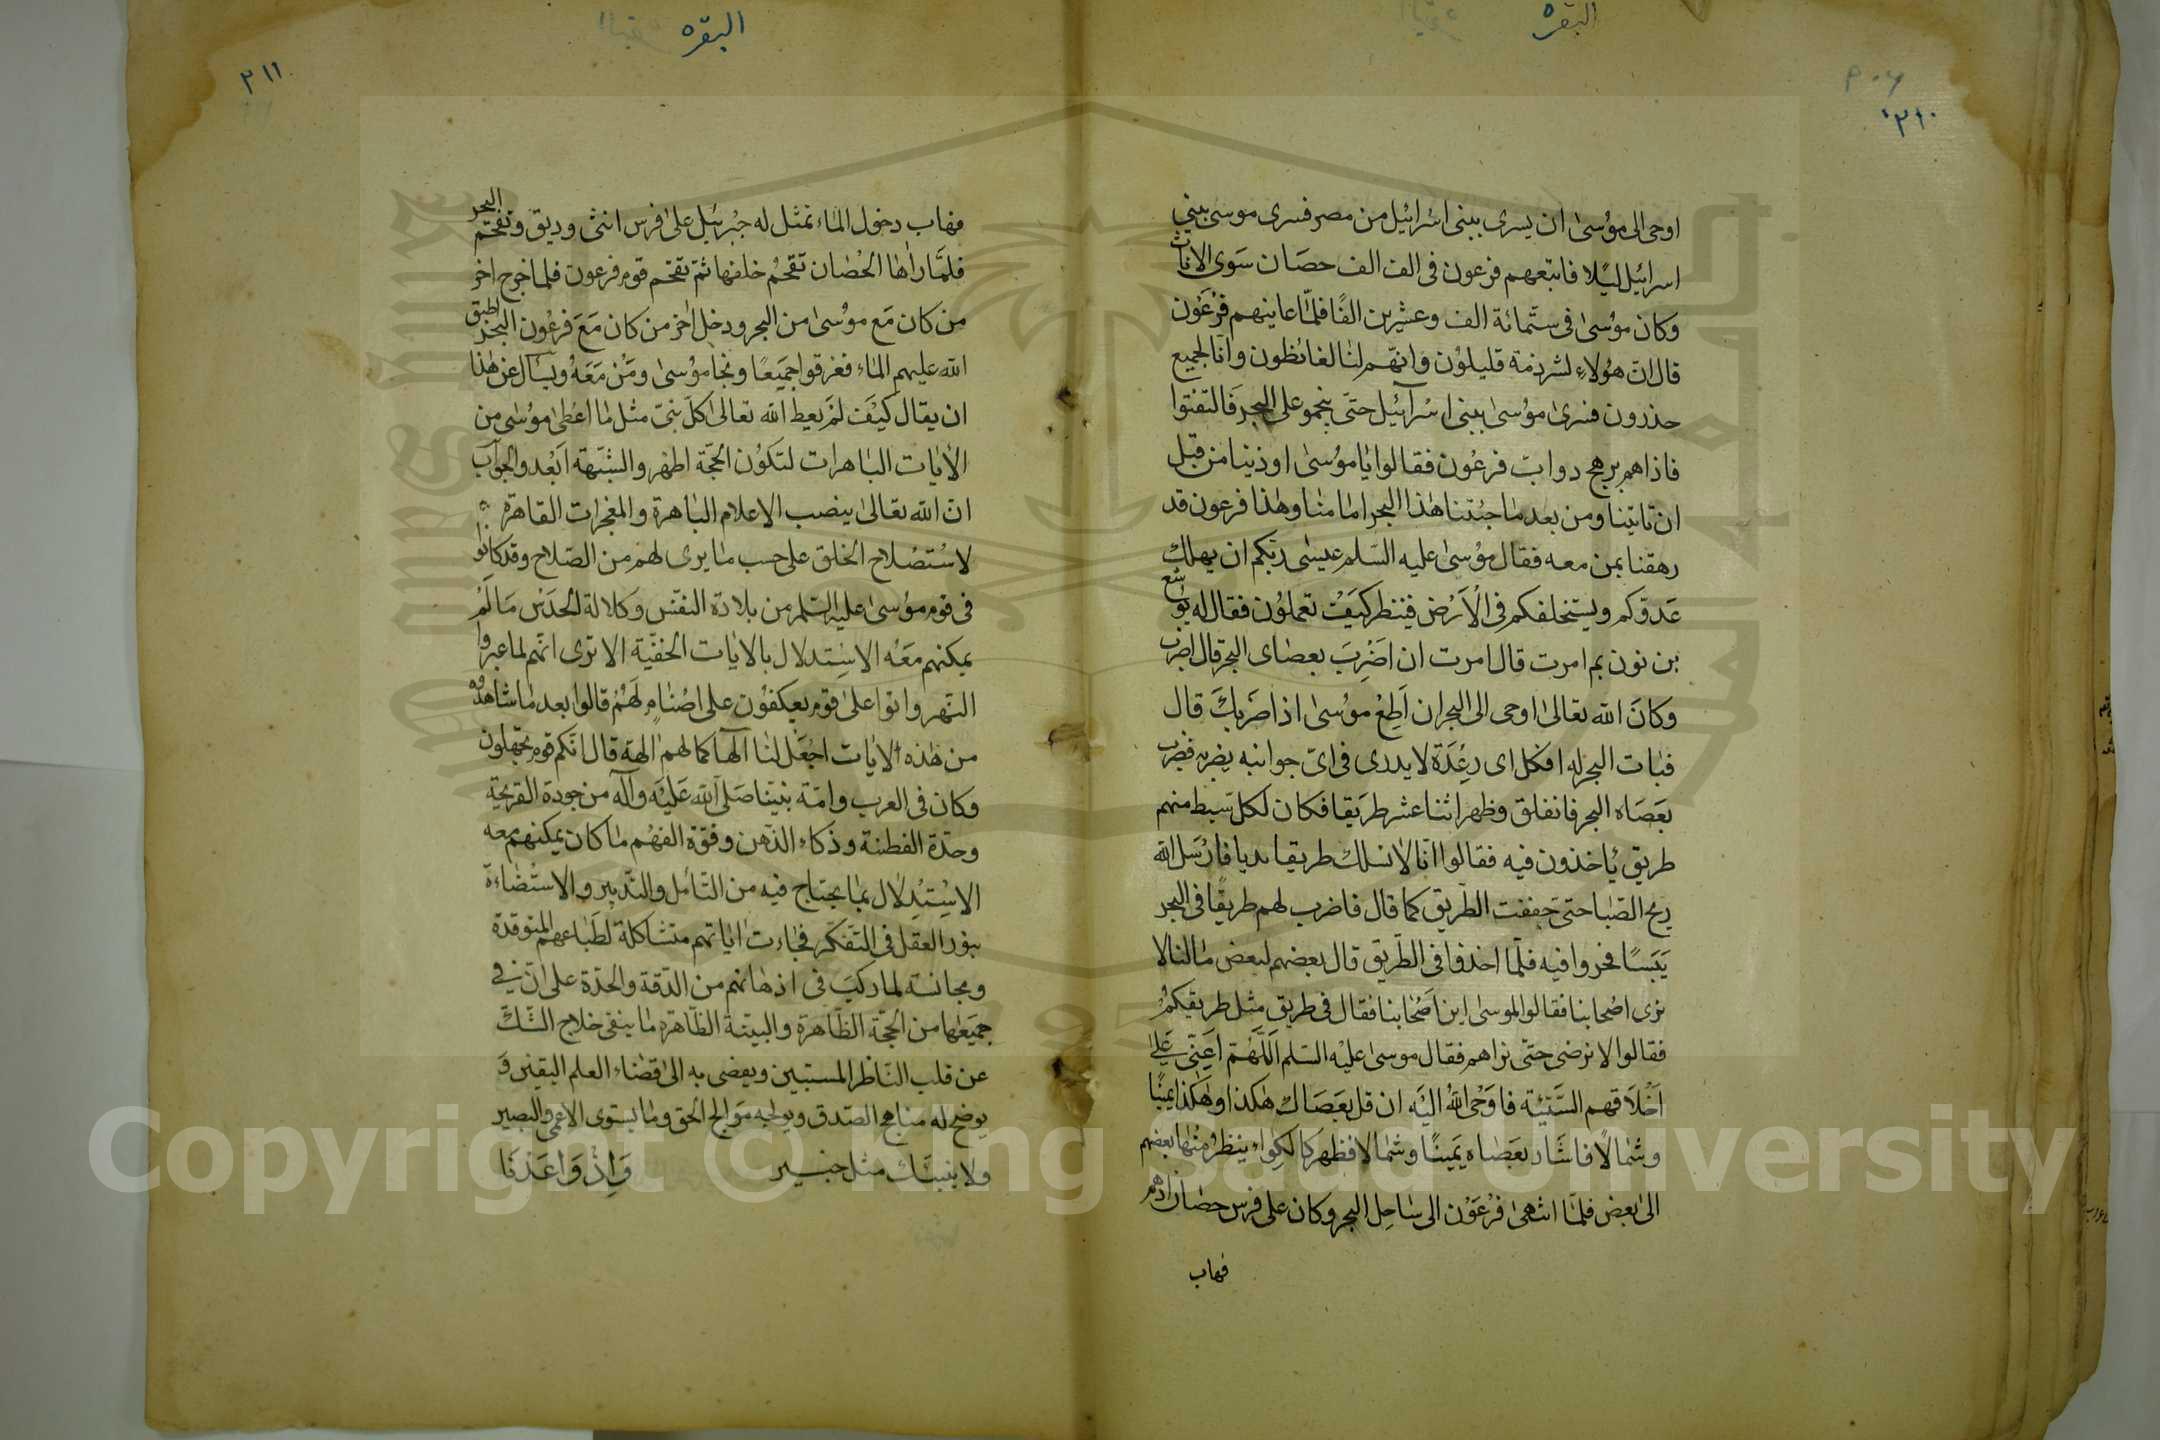 البقره
٢١٠
اوحى الى موُسىٰ ان يسرى ببنى اسرائيل من مصر فسرى موسى ببنى
اسرائيل ليلًا فاتبعهم فرعون فى الف الف حصَان سَوى الاناث
وكان موسىٰ فى ستّمائة الف وعشرين الفًا فلمّا عاينهم فرْعَوْن
قال انّ هؤلاءِ لشرذمة قليلوُن وَانهّم لنا لغائظون وانا لجميع
حذرون فسرىٰ موُسىٰ ببنى اسْرآئيل حتىَّ هجموعلى البحر فالتفتوا
فاذا هم برهج دوابّ فرعوُن فقالوا يا موُسىٰ اوذينا من قبل
ان تاتينا ومن بعد ما جئتنا هٰذا البحر امامنا وهٰذا فرعون قد
رهقنا بمن معه فقال موُسىٰ عليه السّلم عسٰى ربّكم ان يهلك
عَدوّكم ويستخلفكم فى الْاَرْض فينظر كيَفْ تعملوُن فقال له يوُشع
بن نون بم امرت قال امرت ان اضْربَ بعصاى البحر قال اضرب
وكانَ الله تعالىٰ اوحى الى البحر ان اَطِعْ موُسىٰ اذا ضَربكَ قال
فبٰات البحر له افكل اى رِعْدَة لا يدرى فى اىّ جوانبه يضربه فضرب
بعَصَاه البحر فانفلق وظهر اثنا عشر طرَيقا فكان لكل سّبط منهم
طريق ئاخذون فيه فقالوا انّا لا نسلك طريقا نديا فارْسَل الله
ريح الصّبا حتى جففت الطّريق كما قال فاضرب لهم طريقًا فى البحر
يَبَسًا فجروا فيه فلّما اخذوا فى الطّريق قال بعضهم لبعض مٰا لنا لا
نرى اصْحابنا فقالوا لموسىٰ اين اَصْحابنا فقال فى طريق مثل طريقكمْ
فقالوا لا نرضى حتّى نراهم فقال موسىٰ عليْه السّلم اَللّٰهُمّ اَعِنّى عَلىٰ
اَخْلَاقهم السَّيّئِة فاَوحْى اللهُ اليَه ان قل بعَصَاك هٰكذا وهٰكذا يمَينًا
وشمٰالًا فاشَار بعَصٰاه يَمينًا وشمٰالًا فظهر كالكِواء ينظرُ منْها بعضهم
الىٰ بعض فلمّا انتهىٰ فرْعَوْن الى سٰاحِل البحر وكان على فرس حصٰان ادهم
فهاب
البقره
٢١١
فهاب دخول المٰاء تمثّل له جبْرئيل علىٰ فرس انثى وديق وتقحّم البحر
فلمَّا رآهٰا الحْصٰان تقحمّ خلفها ثمّ تقحّم قوم فرعون فلما خرج اخر
من كان مَع موُسىٰ من البحر ودخل اٰخر من كان مَعَ فرعْون البحر اطبق
الله عليهم المٰاء فغرقوا جميَعًا ونجٰا موُسىٰ ومَنْ مَعَهُ ويسأل عن هٰذا
ان يقال كيَفَ لمَ يعط الله تعالىٰ كلّ نبىّ مثل مٰا اعْطىٰ موُسٰى من
الاٰيات البٰاهرات لتكوُن الحجّة اظهر والشّبهة ابَعْد والجوٰاب
انّ الله تعٰالىٰ ينصب الاعلام البٰاهرة والمعْجزات القاهرة
لاسْتصْلاح الخلق على حسب مٰا يرى لهم من الصّلاح وقد كانوا
فى قوم موُسىٰ عليه السّلم من بلادة النفس وكلالة الحدَس مَا لَمْ
يمكنهم مَعَه الاسِتدلال بالاٰيات الخفيّة الا ترى انّهم لما عبروا
النّهر واتوا علىٰ قوم يعكفوُن على اصْنٰامٍ لَهُمْ قالوا بعد مٰا شاهدوه
من هٰذه الاٰيات اجْعَل لنٰا الٰهًا كما لهم الهة قال انّكم قوم تجهلون
وكان فى العرب وامّة نبيّنا صَلّى الله عَليْه وآله من جودة القريحة
وحدّة الفطنة وذكاء الذّهن وقوّة الفهْم مٰا كان يمكنهم معه
الاسْتدِلٰال بمٰا يحتٰاج فيه من التّامّل والتّدبير والاستْضٰاءة
بنور العقل فى التّفكّر فجٰاءت اٰياتهم متشاكلة لطَبٰاعهم المتوقدة
ومجانسة لما ركبَ فى اذهٰانهم من الدّقة والحدّة على انّ فى
جميَعهٰا من الحجّة الظّاهرَة والبيّنة الظّاهرة مٰا ينفى خلاج الشّكّ
عن قلب النّاظر المستبين ويفضى به الىٰ فضٰاء العلم اليقين وَ
يوضح له منٰاهج الصّدق ويولجه مَوالج الحق ومٰا يستوى الاعْمى والبصير
ولا ينبئك مثل خبـــير وَاِذْ وَاعَدْنٰا
Copyright © King Saud University